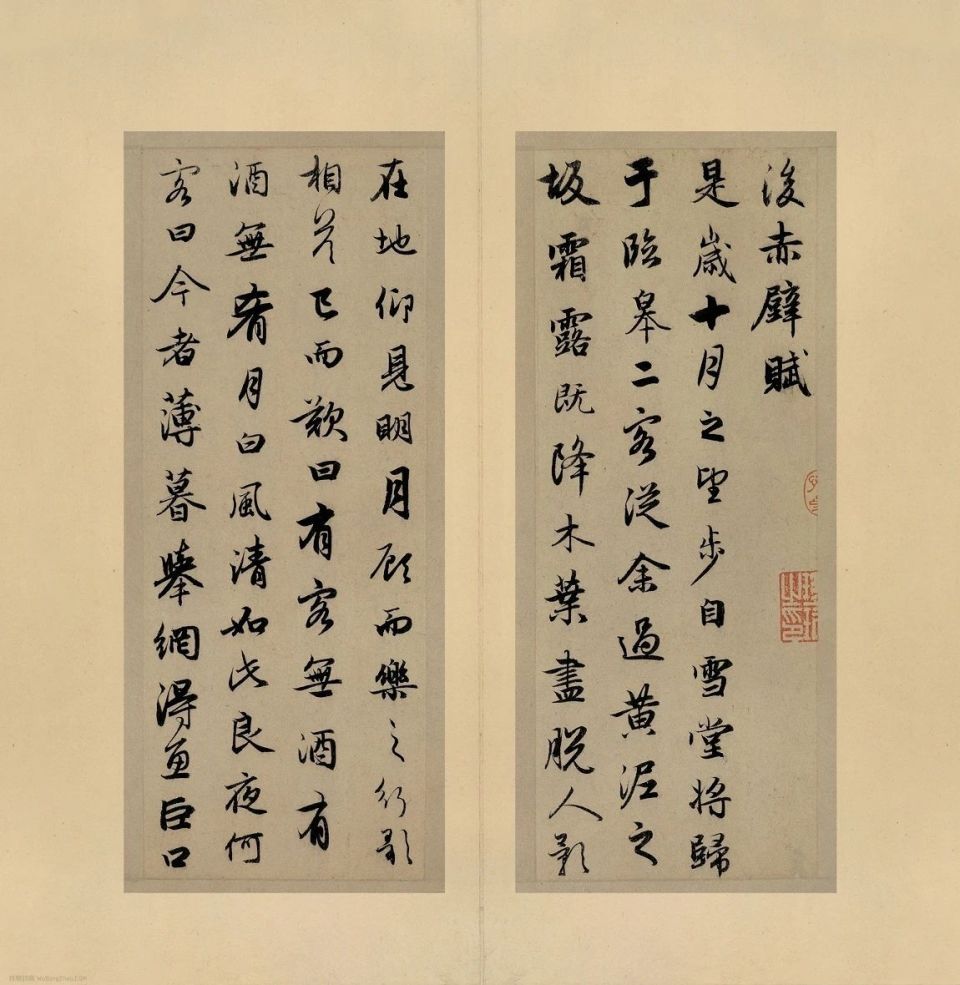 後赤壁賦
是歳十月之望步自雪堂將歸
于臨皋二客從余過黄泥之
坂霜露既降木葉盡脱人影
在地仰見明月顧而樂之行歌
相答已而歎曰有客無酒有
酒無肴月白風清如此良夜何
客曰今者薄暮舉網得魚巨口